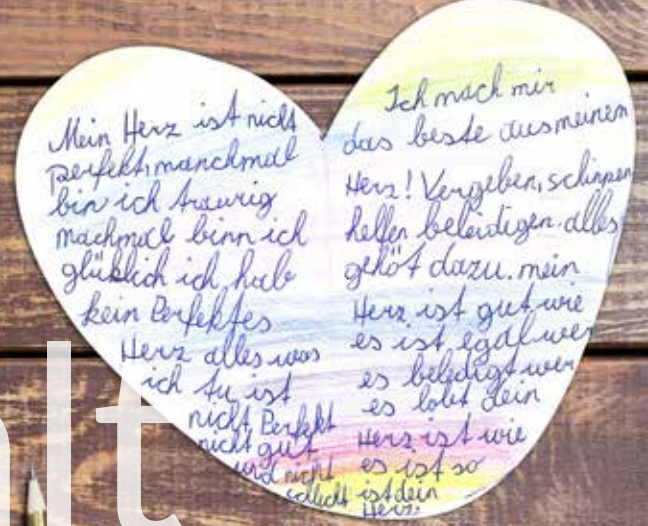 Mein Herz ist nicht
perfekt, manchmal
bin ich traurig
machmal binn ich
glüklich ich, hab
kein Perfektes
Herz alles was
ich tu ist
nicht Perfekt
nicht gut
und nicht
schlecht
Ich mach mir
das beste aus meinem
Herz! Vergeben, schimpen
helfen beleidigen. alles
gehöt dazu. mein
Herz ist gut wie
es ist, egal wer
es beledigt wer
es lobt dein
Herz ist wie
es ist so
ist dein
Herz.